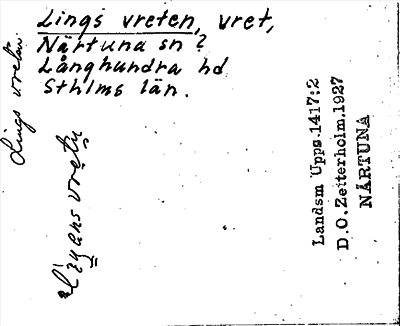 Lings vreten, vret,
Närtuna sn?
Långhundra hd
Sthlms län.
Lings vreten
Landsm Upps.1417:2
D.O.Zetterholm.1927
NÄRTUNA